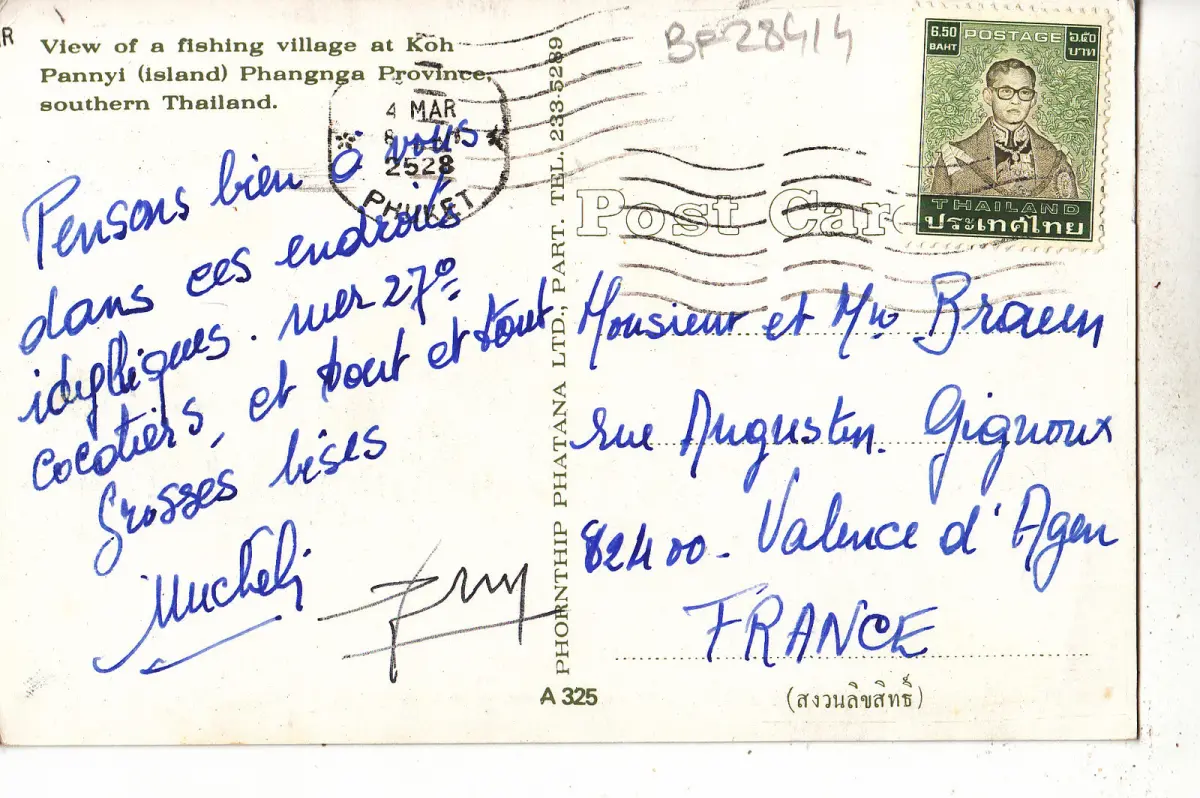 View of a fishing village at Koh
Pannyi (island) Phangnga Province,
southern Thailand.
4 MAR
2528
PHUKET
BF28414
6.50
BAHT
POSTAGE
๖.๕๐
บาท
THAILAND
ประเทศไทย
Post Car
Pensons bien à vous
dans ces endroits
idylliques. mer 27°
cocotiers, et tout et tout
Grosses bises
PHORNTHIP PHATANA LTD., PART. TEL. 233-5289
Monsieur et Mme
rue Augustin Gignoux
82400 - Valence d'Agen
FRANCE
A 325
(สงวนลิขสิทธิ์)